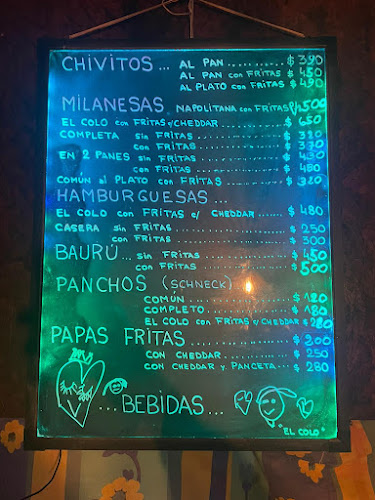 CHIVITOS... AL PAN ............ $ 390
AL PAN con FRITAS ... $ 450
AL PLATO con FRITAS ... $ 490
MILANESAS NAPOLITANA con FRITAS $ 500
EL COLO con FRITAS c/CHEDDAR ............ $ 650
COMPLETA sin FRITAS ............ $ 310
con FRITAS ............ $ 370
EN 2 PANES sin FRITAS ............ $ 430
con FRITAS ............ $ 480
COMÚN al PLATO con FRITAS ............ $ 380
HAMBURGUESAS ...
EL COLO con FRITAS c/ CHEDDAR ....... $ 480
CASERA sin FRITAS ............ $ 250
con FRITAS ............ $ 300
BAURÚ... sin FRITAS ............ $ 450
con FRITAS ............ $ 500
PANCHOS (SCHNECK)
COMÚN ............ $ 120
COMPLETO ............ $ 180
EL COLO con FRITAS c/CHEDDAR $ 280
PAPAS FRITAS ............ $ 200
CON CHEDDAR ............ $ 250
CON CHEDDAR y PANCETA... $ 280
... BEBIDAS ...
"EL COLO"